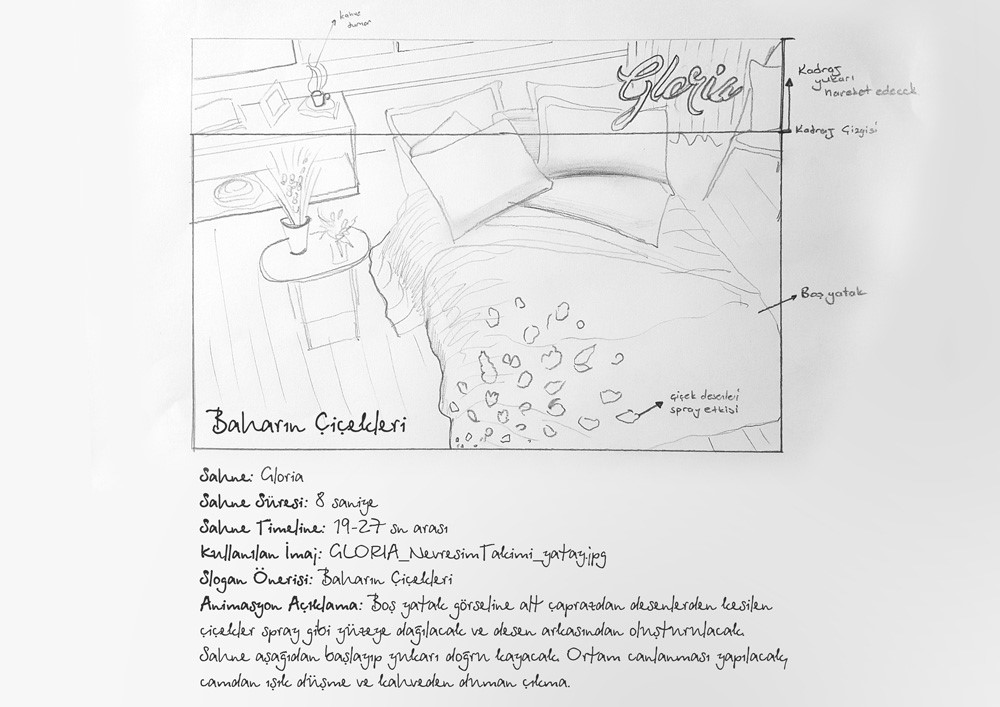 kahve
duman
Gloria
Kadraj
yukarı
hareket edecek
Kadraj Çizgisi
Boş yatak
çiçek desenleri
spray etkisi
Baharın Çiçekleri
Sahne: Gloria
Sahne Süresi: 8 saniye
Sahne Timeline: 19-27 sn arası
Kullanılan İmaj: GLORIA_NevresimTakimi_yatay.jpg
Slogan Önerisi: Baharın Çiçekleri
Animasyon Açıklama: Boş yatak görseline alt çaprazdan desenlerden kesilen
çiçekler spray gibi yüzeye dağılacak ve desen arkasından oluşturulacak.
Sahne aşağıdan başlayıp yukarı doğru kayacak. Ortam canlanması yapılacak,
camdan ışık düşme ve kahveden duman çıkma.